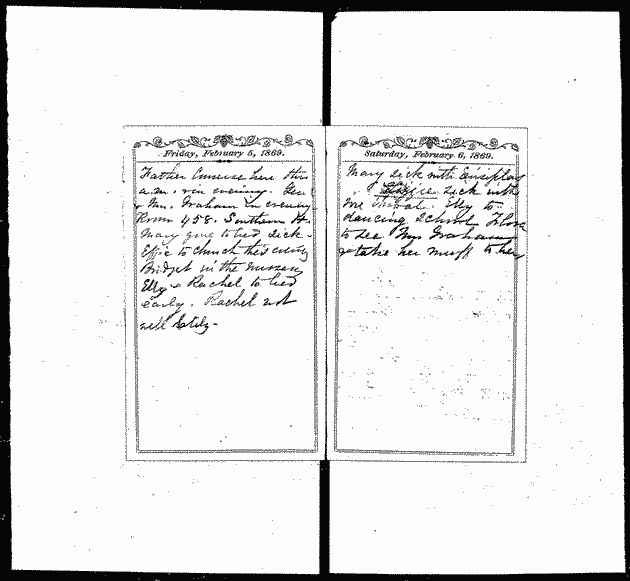 Friday, February 5, 1869.
Father Converse here this
a.m. & in evening. Gen
& Mrs. Graham in evening
Room 458. Southern H.
Mary gone to bed sick.
Effie to church this evening
Bridget in the nursery
Elly & Rachel to bed
early. Rachel not
well lately.
Saturday, February 6, 1869.
Mary sick with Erisiplas
Effie sick with
sore throat. Elly to
dancing school Flora
to see Mrs Graham
& take her muff to her